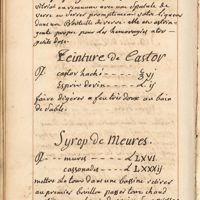 vitriol en remuant avec une spatule de
verre ou versez promptement cette liqueur
dans une Bouteille de verre elle est astrin
gente propre pour les hemoragies a tres
petite dose.
Teinture de Castor
℞ castor haché ℥vj
Esprit de vin ij
faire digerer a feu tres doux au bain
de sable.
Syrop de Meures.
℞ mures LXVI.
cassonade LXXXij
mettre le tout dans une bassine retirez
au premier bouillon passez tout chaud